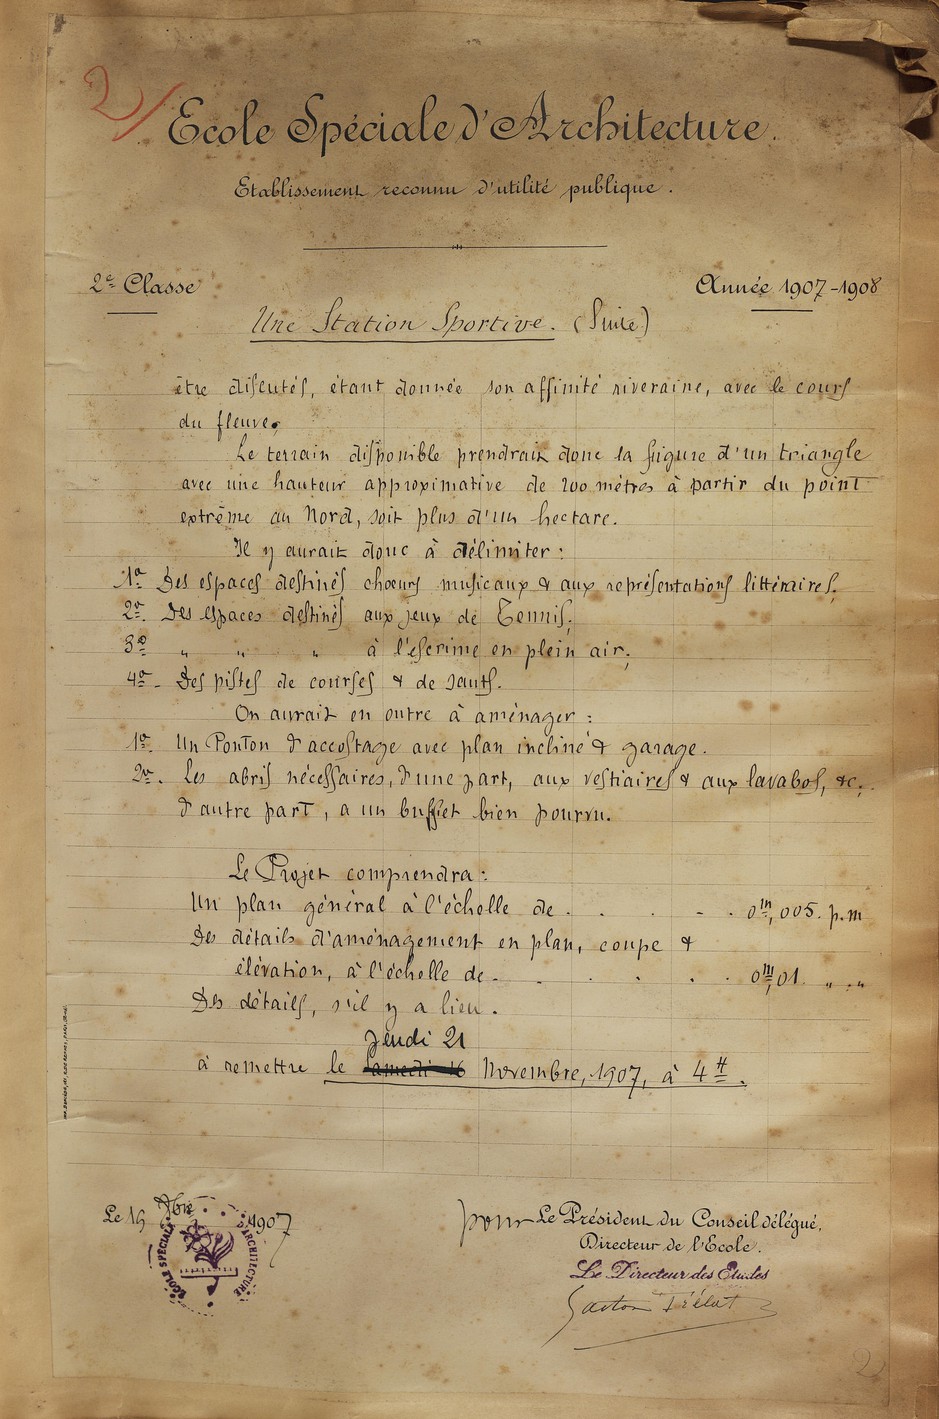 2/
Ecole Spéciale d'Architecture.
Etablissement reconnu d'utilité publique.
2e Classe
Année 1907-1908
Une Station Sportive. (Suite)
être discutés, étant donnée son affinité riveraine, avec le cours
du fleuve.
Le terrain disponible prendrait donc la figure d'un triangle
avec une hauteur approximative de 200 mètres à partir du point
extrême au Nord, soit plus d'un hectare.
Il y aurait donc à délimiter :
1o Des espaces destinés chœurs musicaux & aux représentations littéraires;
2o. Des espaces destinés aux jeux de Tennis;
3o " " " à l'escrime en plein air;
4o. Des pistes de courses & de sauts.
On aurait en outre à aménager :
1o. Un Ponton d'accostage avec plan incliné & garage.
2o. Les abris nécessaires, d'une part, aux vestiaires & aux lavabos, &c;
d'autre part, a un buffet bien pourvu.
Le Projet comprendra :
Un plan général à l'échelle de . . . . . 0m,005. p.m
Des détails d'aménagement en plan, coupe &
élévation, à l'échelle de . . . . . 0m,01. " . "
Des détails, s'il y a lieu.
Jeudi 21
à remettre le Samedi 16 Novembre, 1907, à 4H.
Le 19 1907
pour Le Président du Conseil délégué,
Directeur de l'Ecole.
Le Directeur des Etudes
Gaston Trélat
ECOLE SPÉCIALE D'ARCHITECTURE
2